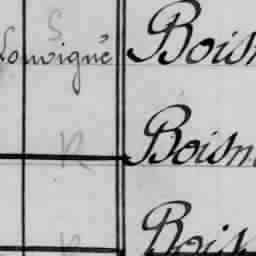 S
Louvigné Boism
R Boism
R Boism